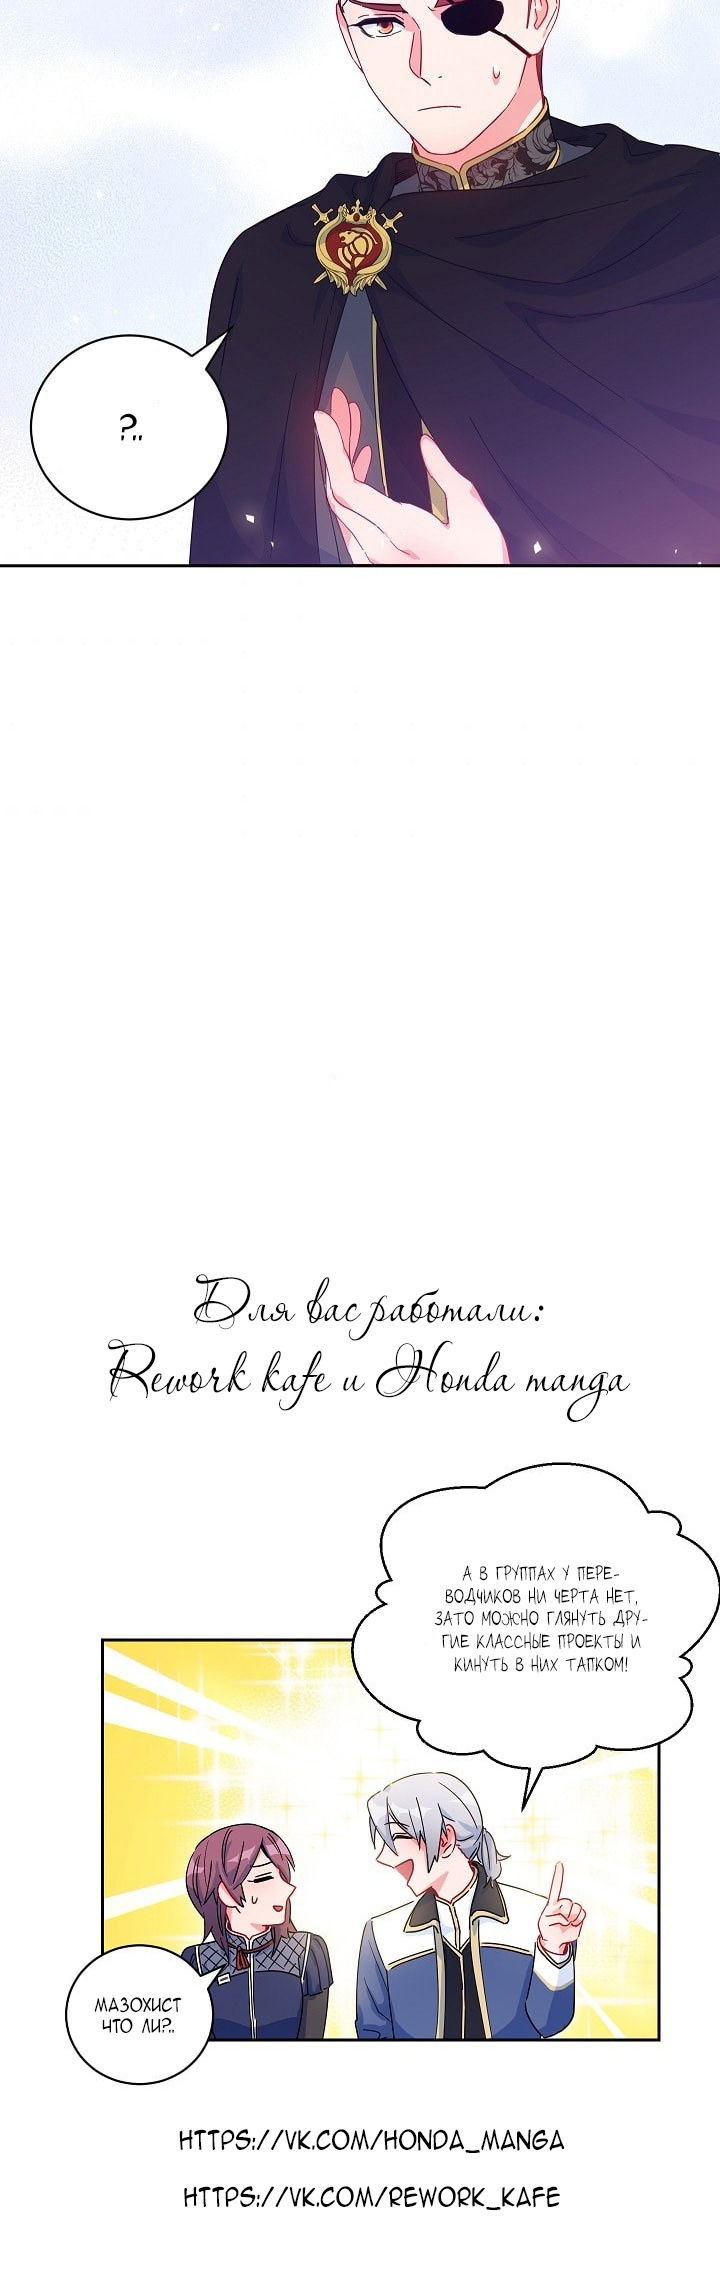 ?..
Для вас работали:
Rework kafe и Honda manga
А В ГРУППАХ У ПЕРЕ-
ВОДЧИКОВ НИ ЧЕРТА НЕТ,
ЗАТО МОЖНО ГЛЯНУТЬ ДРУ-
ГИЕ КЛАССНЫЕ ПРОЕКТЫ И
КИНУТЬ В НИХ ТАПКОМ!
МАЗОХИСТ
ЧТО ЛИ?..
HTTPS://VK.COM/HONDA_MANGA
HTTPS://VK.COM/REWORK_KAFE